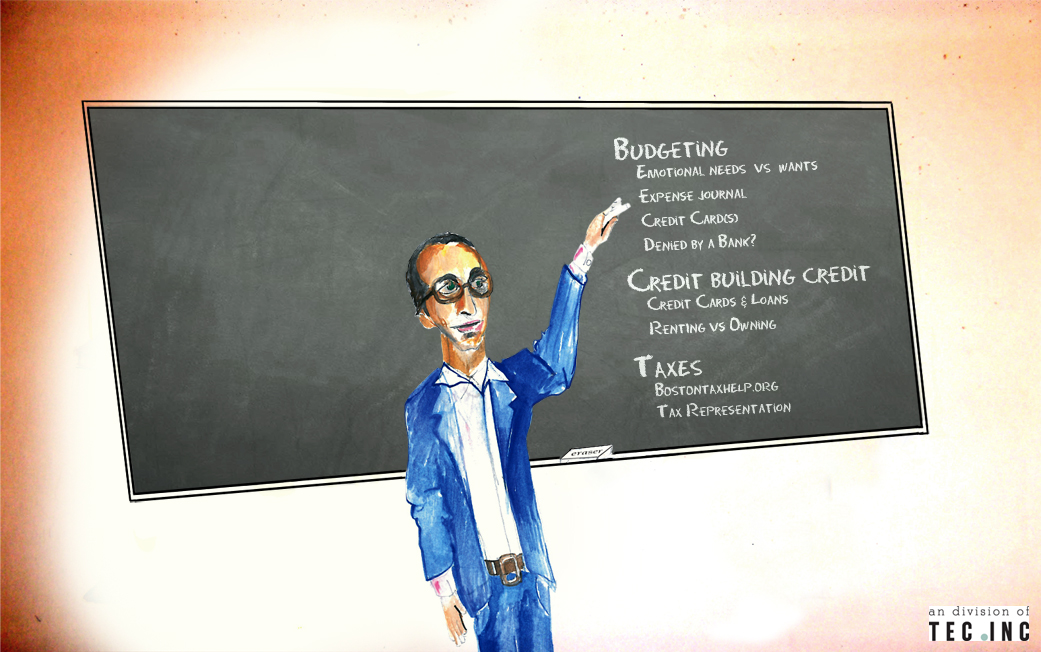 Budgeting
Emotional needs vs wants
Expense journal
Credit Card(s)
Denied by a Bank?
Credit building credit
Credit Cards & Loans
Renting vs Owning
Taxes
Bostontaxhelp.org
Tax Representation
eraser
an division of
TEC.INC